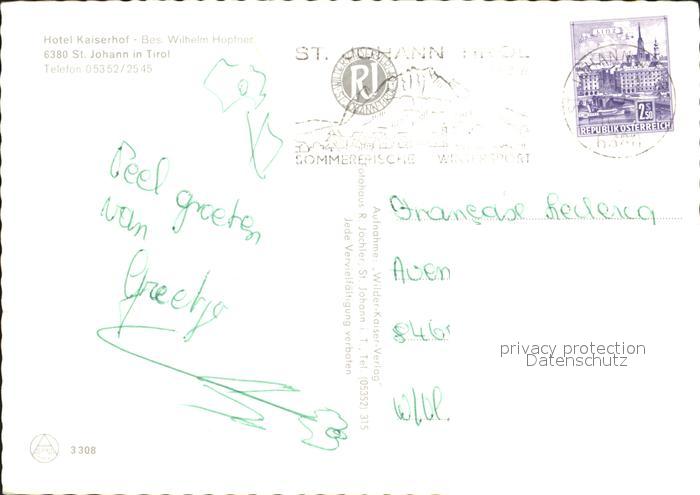 Hotel Kaiserhof - Bes. Wilhelm Hopfner
6380 St. Johann in Tirol
Telefon 05352/2545
ST. JOHANN TIROL
RJ
SOMMERFRISCHE WINTERSPORT
LINZ
2.50
REPUBLIK ÖSTERREICH
Veel groeten
van
Greetje
Aufnahme: „Wilder-Kaiser-Verlag"
Fotohaus R. Jöchler, St. Johann i. T., Tel. (05352) 315
Jede Vervielfältigung verboten
Françoise Leclercq
846
W/Vl.
privacy protection
Datenschutz
3308